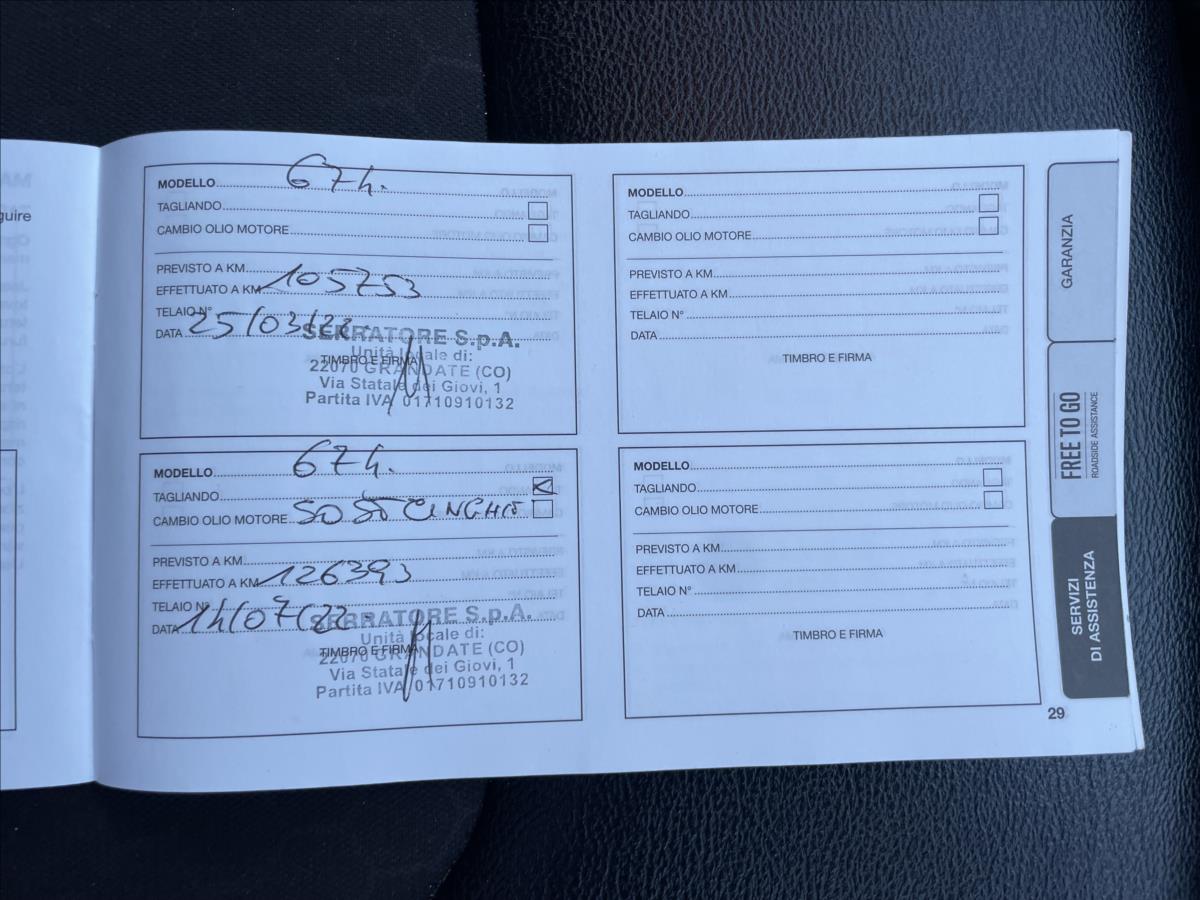 guire
MODELLO 67h.
TAGLIANDO
CAMBIO OLIO MOTORE
PREVISTO A KM
EFFETTUATO A KM 105753
TELAIO N°
DATA 25/03/22
TIMBRO E FIRMA
SERRATORE S.p.A.
Unità locale di:
22070 GRANDATE (CO)
Via Statale dei Giovi, 1
Partita IVA 01710910132
MODELLO 67h.
TAGLIANDO
CAMBIO OLIO MOTORE
PREVISTO A KM
EFFETTUATO A KM 126393
TELAIO N°
DATA 14/07/22
TIMBRO E FIRMA
SERRATORE S.p.A.
Unità locale di:
22070 GRANDATE (CO)
Via Statale dei Giovi, 1
Partita IVA 01710910132
MODELLO
TAGLIANDO
CAMBIO OLIO MOTORE
PREVISTO A KM
EFFETTUATO A KM
TELAIO N°
DATA
TIMBRO E FIRMA
MODELLO
TAGLIANDO
CAMBIO OLIO MOTORE
PREVISTO A KM
EFFETTUATO A KM
TELAIO N°
DATA
TIMBRO E FIRMA
GARANZIA
FREE TO GO
ROADSIDE ASSISTANCE
SERVIZI
DI ASSISTENZA
29